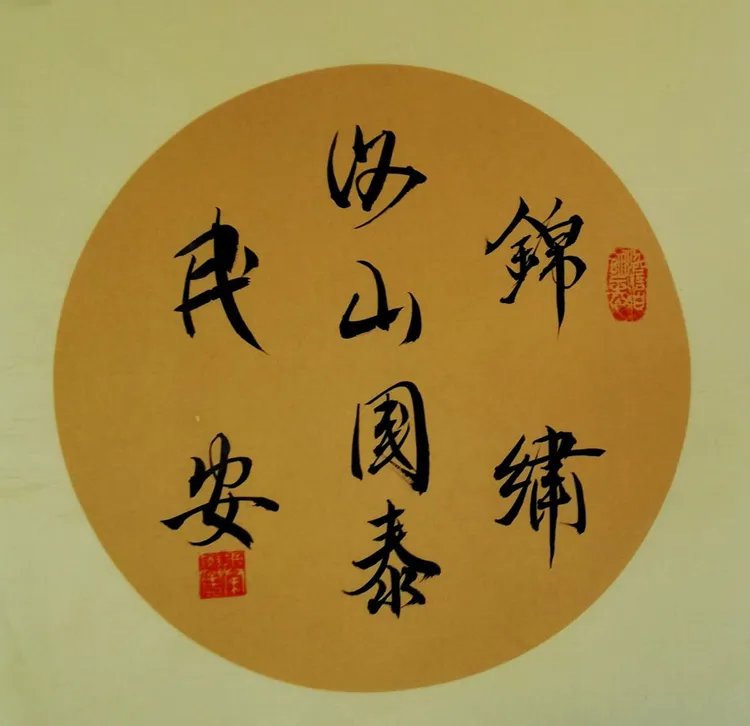 錦繡
河山國泰
民安